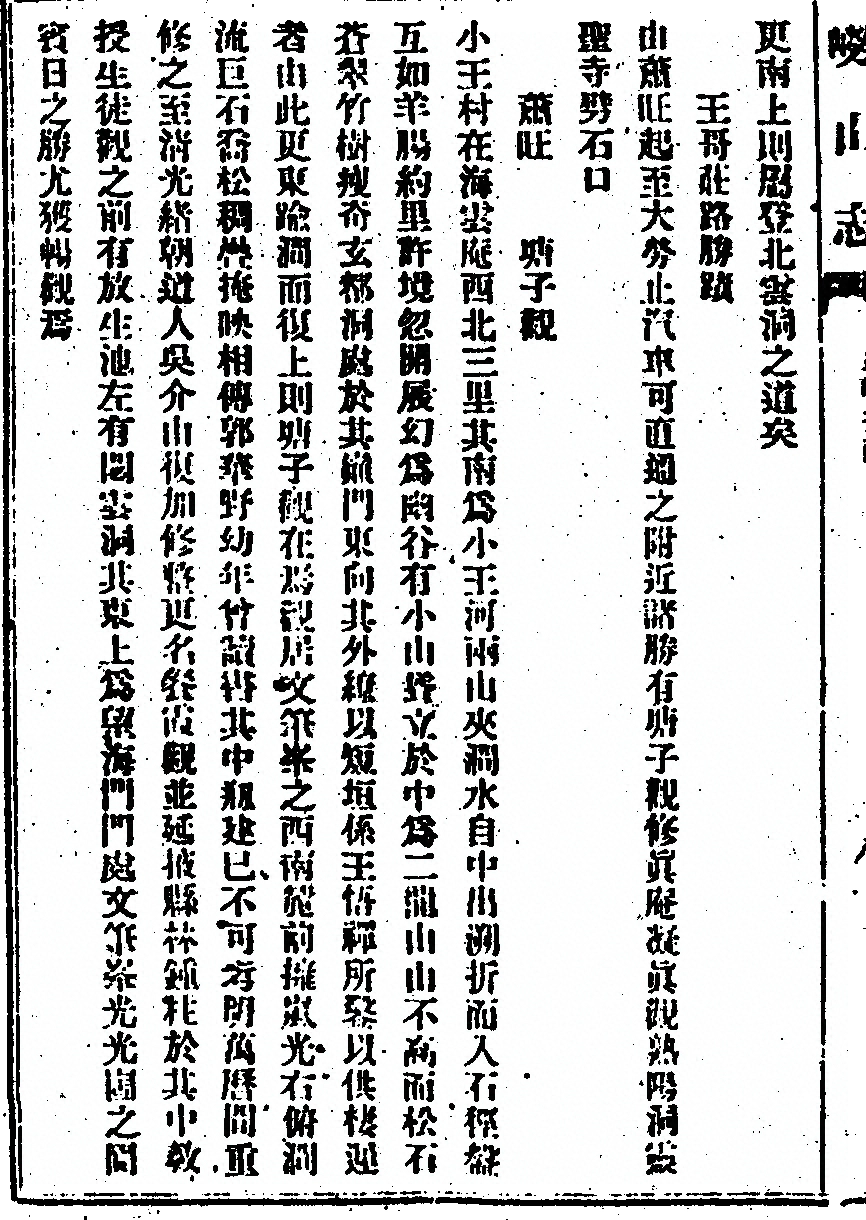 嶗山志
更南上則爲登北雲洞之道矣
王哥莊路勝蹟
由蕭旺起至大勞止汽車可直通之附近諸勝有塘子觀修眞庵凝眞觀熟陽洞靈
聖寺劈石口
蕭旺　塘子觀
小王村在海雲庵西北三里其南爲小王河兩山夾澗水自中出溯折而入石徑盤
互如羊腸約里許境忽開展幻爲幽谷有小山聳立於中爲二龍山山不高而松石
蒼翠竹樹瘦奇玄都洞處於其巔門東向其外繚以短垣係王悟禪所鑿以供棲遲
者由此更東踰澗而復上則塘子觀在焉觀居文筆峯之西南麓前擁嵐光右俯澗
流巨石喬松稠疊掩映相傳郭華野幼年曾讀書其中觀建已不可考明萬曆間重
修之至淸光緒朝道人吳介山復加修葺更名餐霞觀並延掖縣林鍾柱於其中敎
授生徒觀之前有放生池左有閒雲洞其東上爲望海門門處文筆峯光光崮之間
賓日之勝尤獲暢觀焉